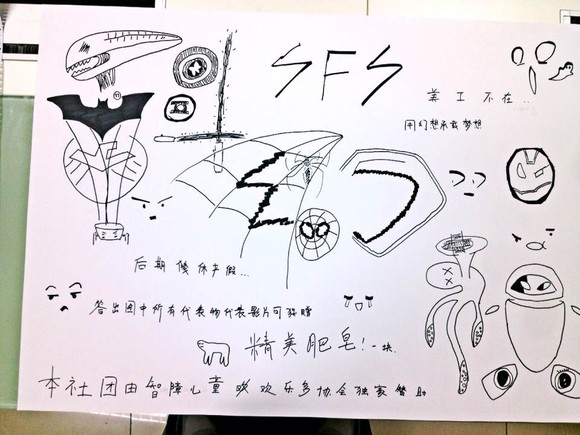 SFS
美工不在...
用幻想承载梦想
后期傻休产假...
答出图中所有代表物代表影片可获赠
精美肥皂!一块.
本社团由智障儿童欢欢乐多协会独家赞助